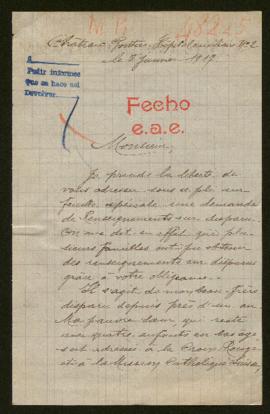 N.B. 48225
Château Gontier, Hôpital auxiliaire No 2
le 8 Janvier 1917.
A
Pedir informes
que se hace así
Devolver.
Fecho
e.a.e.
Monsieur,
Je prends la liberté de
vous adresser sous ce pli sur
feuille séparée une demande
de Renseignements sur disparu.
On me dit en effet que plu
sieurs familles ont pu obtenir
des renseignements sur disparus
grâce à votre obligeance.
Il s'agit de mon beau-frère
disparu depuis près d'un an
Ma pauvre sœur, qui reste
avec quatre enfants en bas âge
s'est adressée à la Croix Rouge
et à la Mission Catholique Suisse